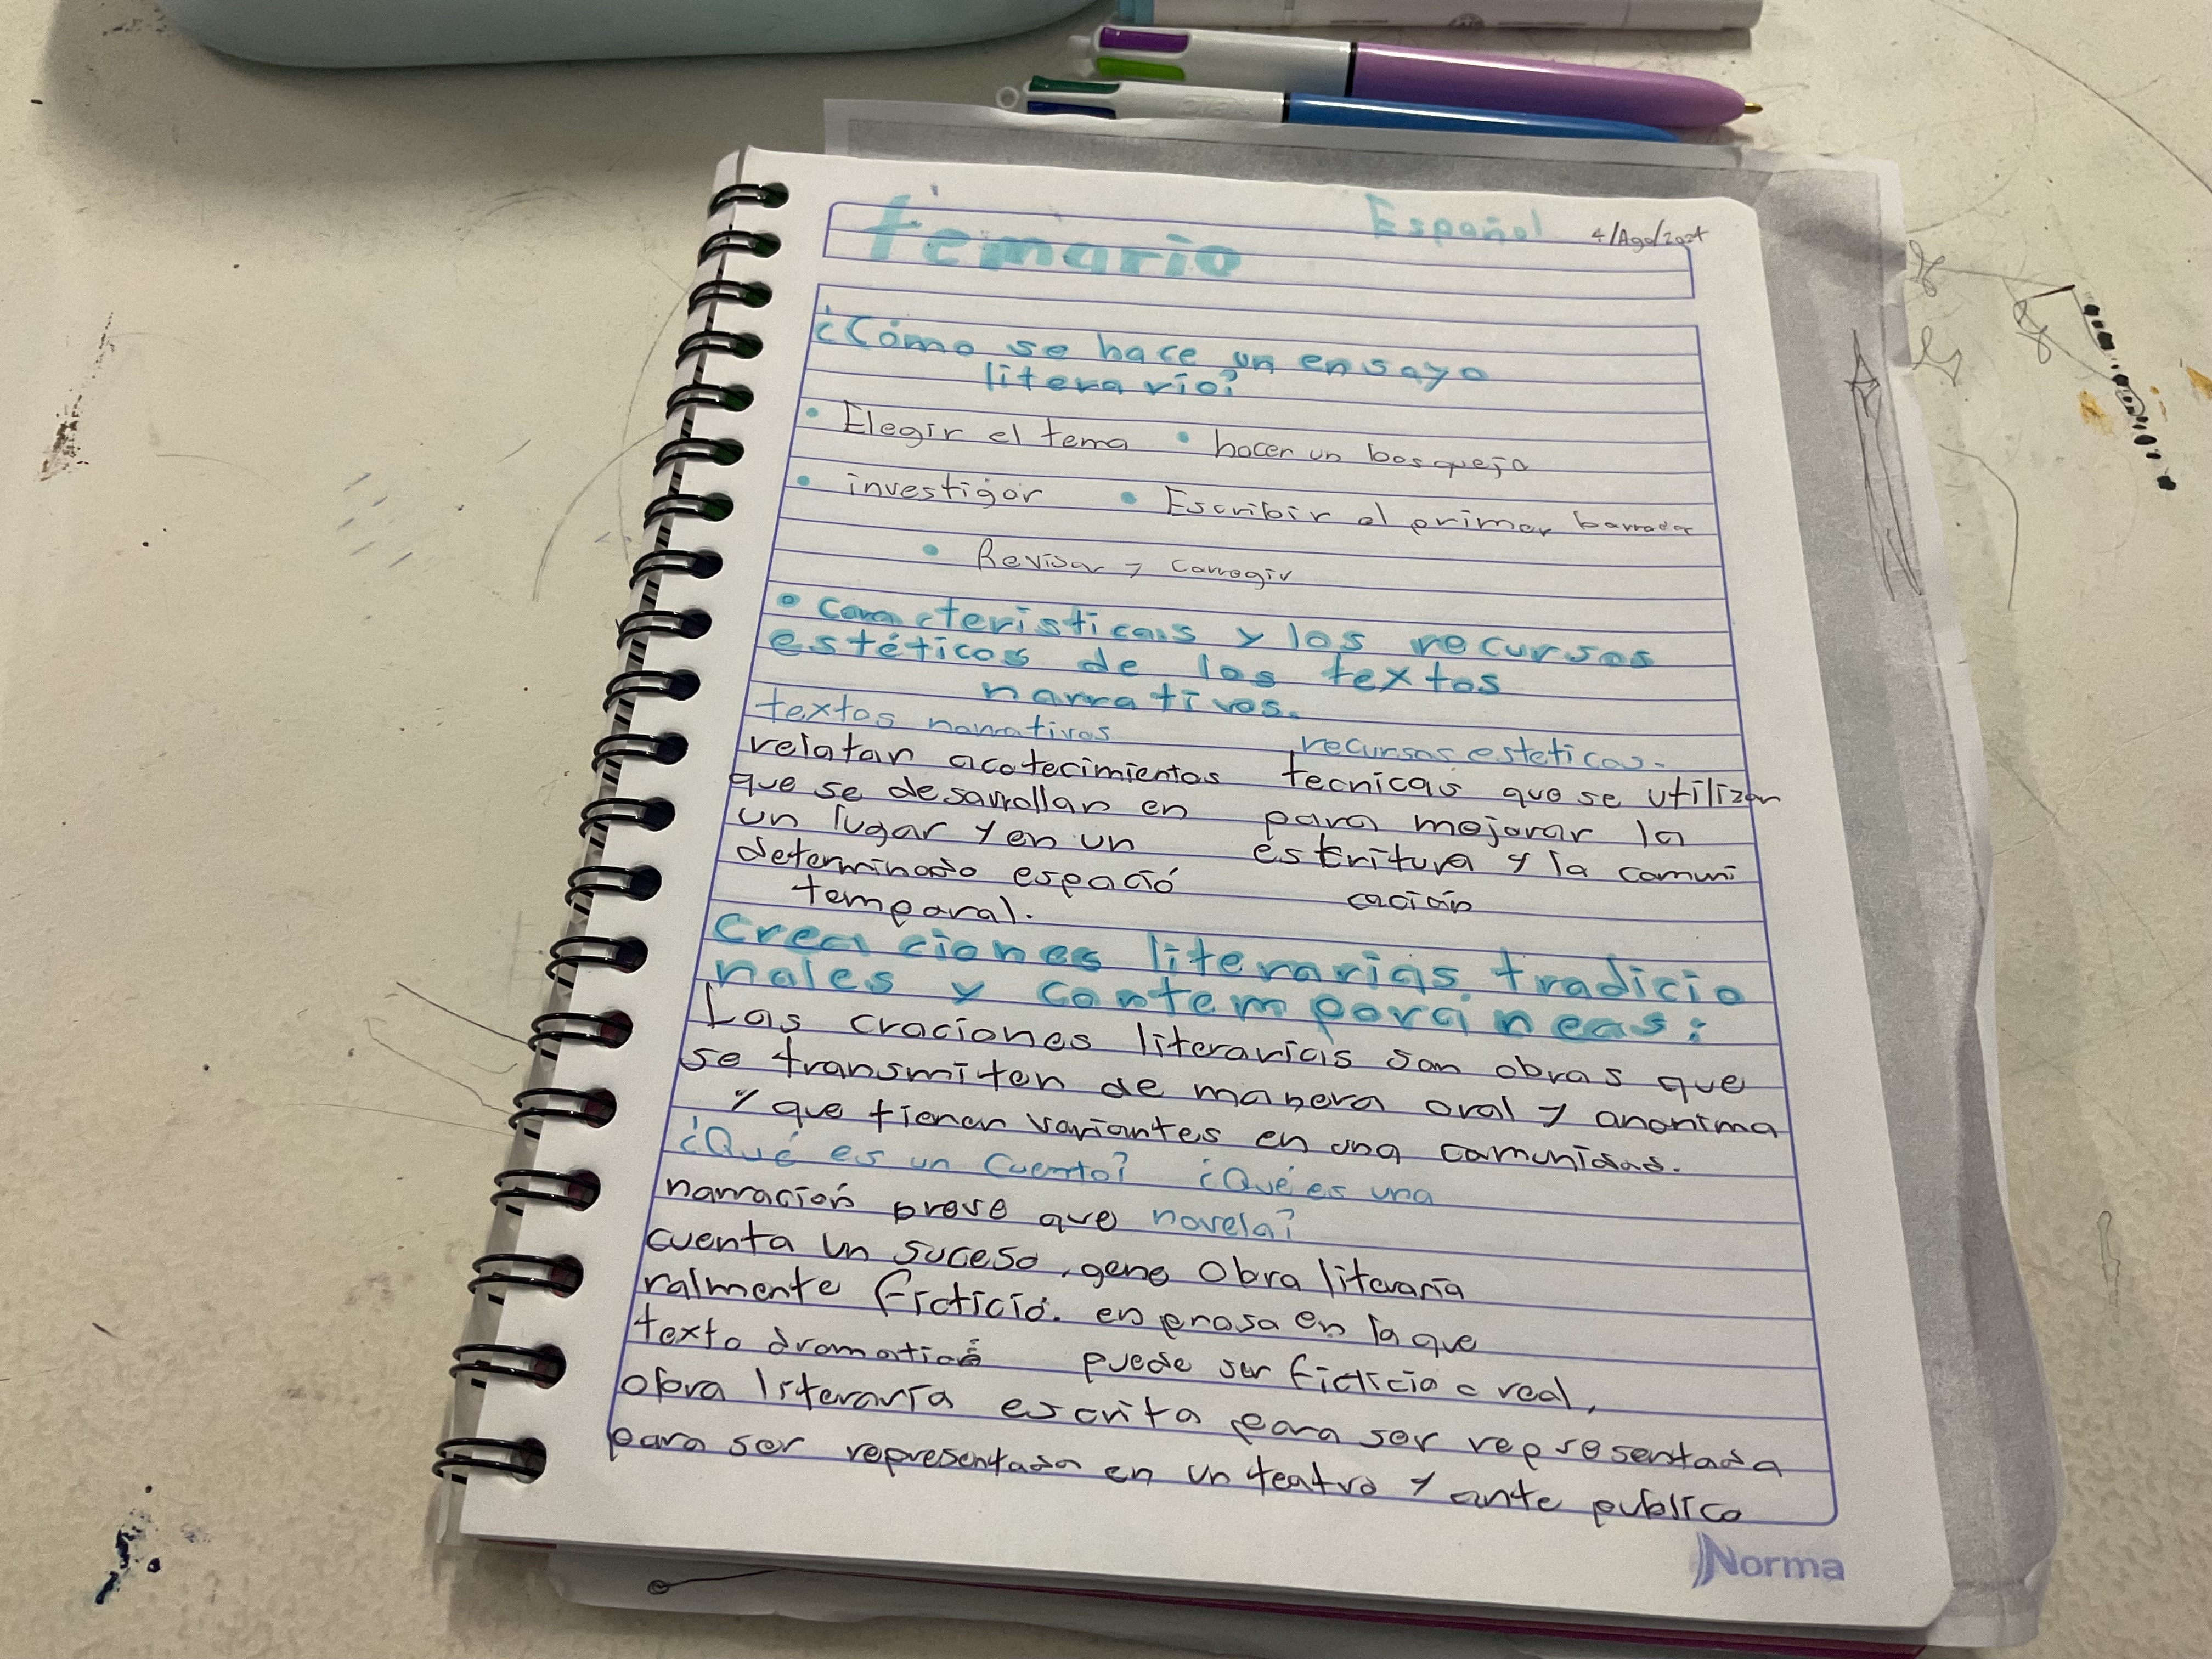 temario
Español
4/Ago/2024
¿Cómo se hace un ensayo
literario?
• Elegir el tema • hacer un bosquejo
• investigar • Escribir el primer borrador
• Revisar y corregir
• características y los recursos
estéticos de los textos
narrativos.
textos narrativos
relatar acotecimientos
que se desarrollan en
un lugar y en un
determinado espació
temporal.
recursos esteticos.
tecnicas que se utilizan
para mejorar la
escritura y la comuni
cación
Creaciones literarias tradicio
nales y contemporáneas:
Las craciones literarias son obras que
se transmiten de manera oral y anonima
y que tienen variantes en una comunidad.
¿Qué es un Cuento?
narración breve que
cuenta un suceso, gene
ralmente ficticio.
¿Qué es una
novela?
Obra literaria
en prosa en la que
puede ser ficticio o real,
texto dramatico
obra literaria escrita para ser representada
para ser representada en un teatro y ante publico
Norma